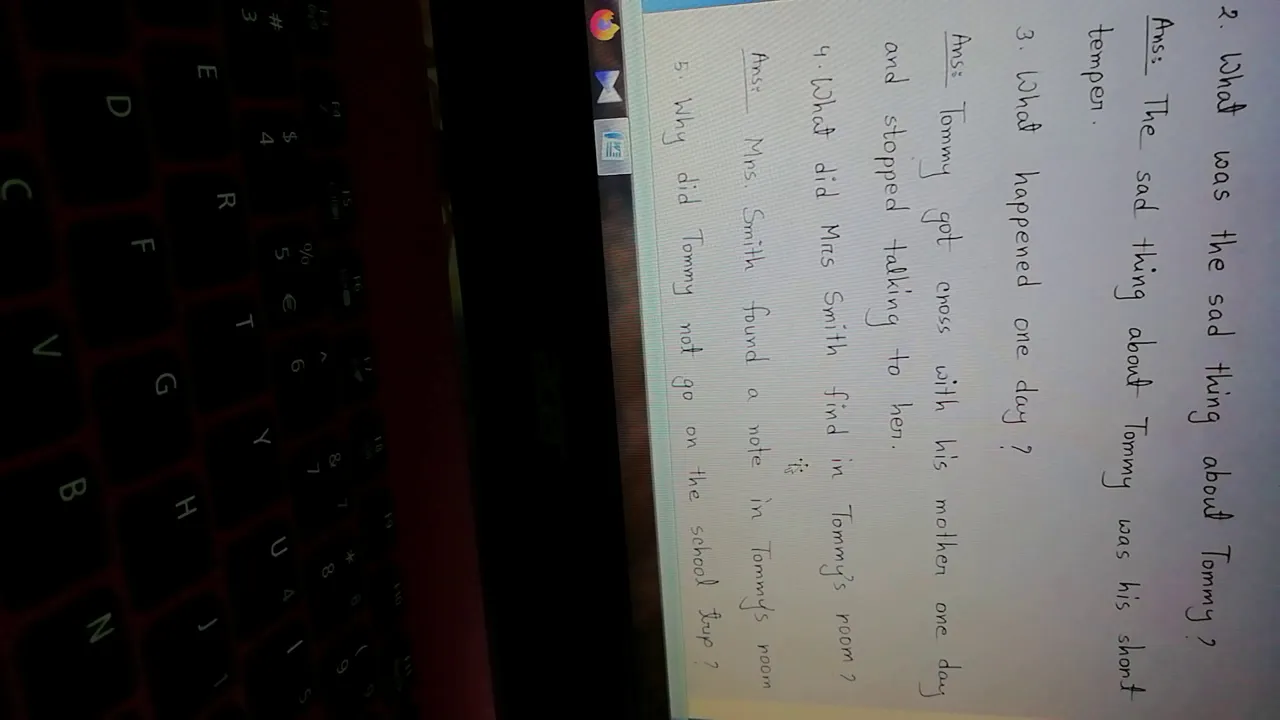 2. What was the sad thing about Tommy?
Ans: The sad thing about Tommy was his short
temper.
3. What happened one day?
Ans: Tommy got cross with his mother one day
and stopped talking to her.
4. What did Mrs Smith find in Tommy's room?
Ans: Mrs. Smith found a note in Tommy's room
5. Why did Tommy not go on the school trip?
# 3
$ 4
% 5 €
^ 6
& 7
* 8
( 9
E R T Y U I
D F G H J
C V B N